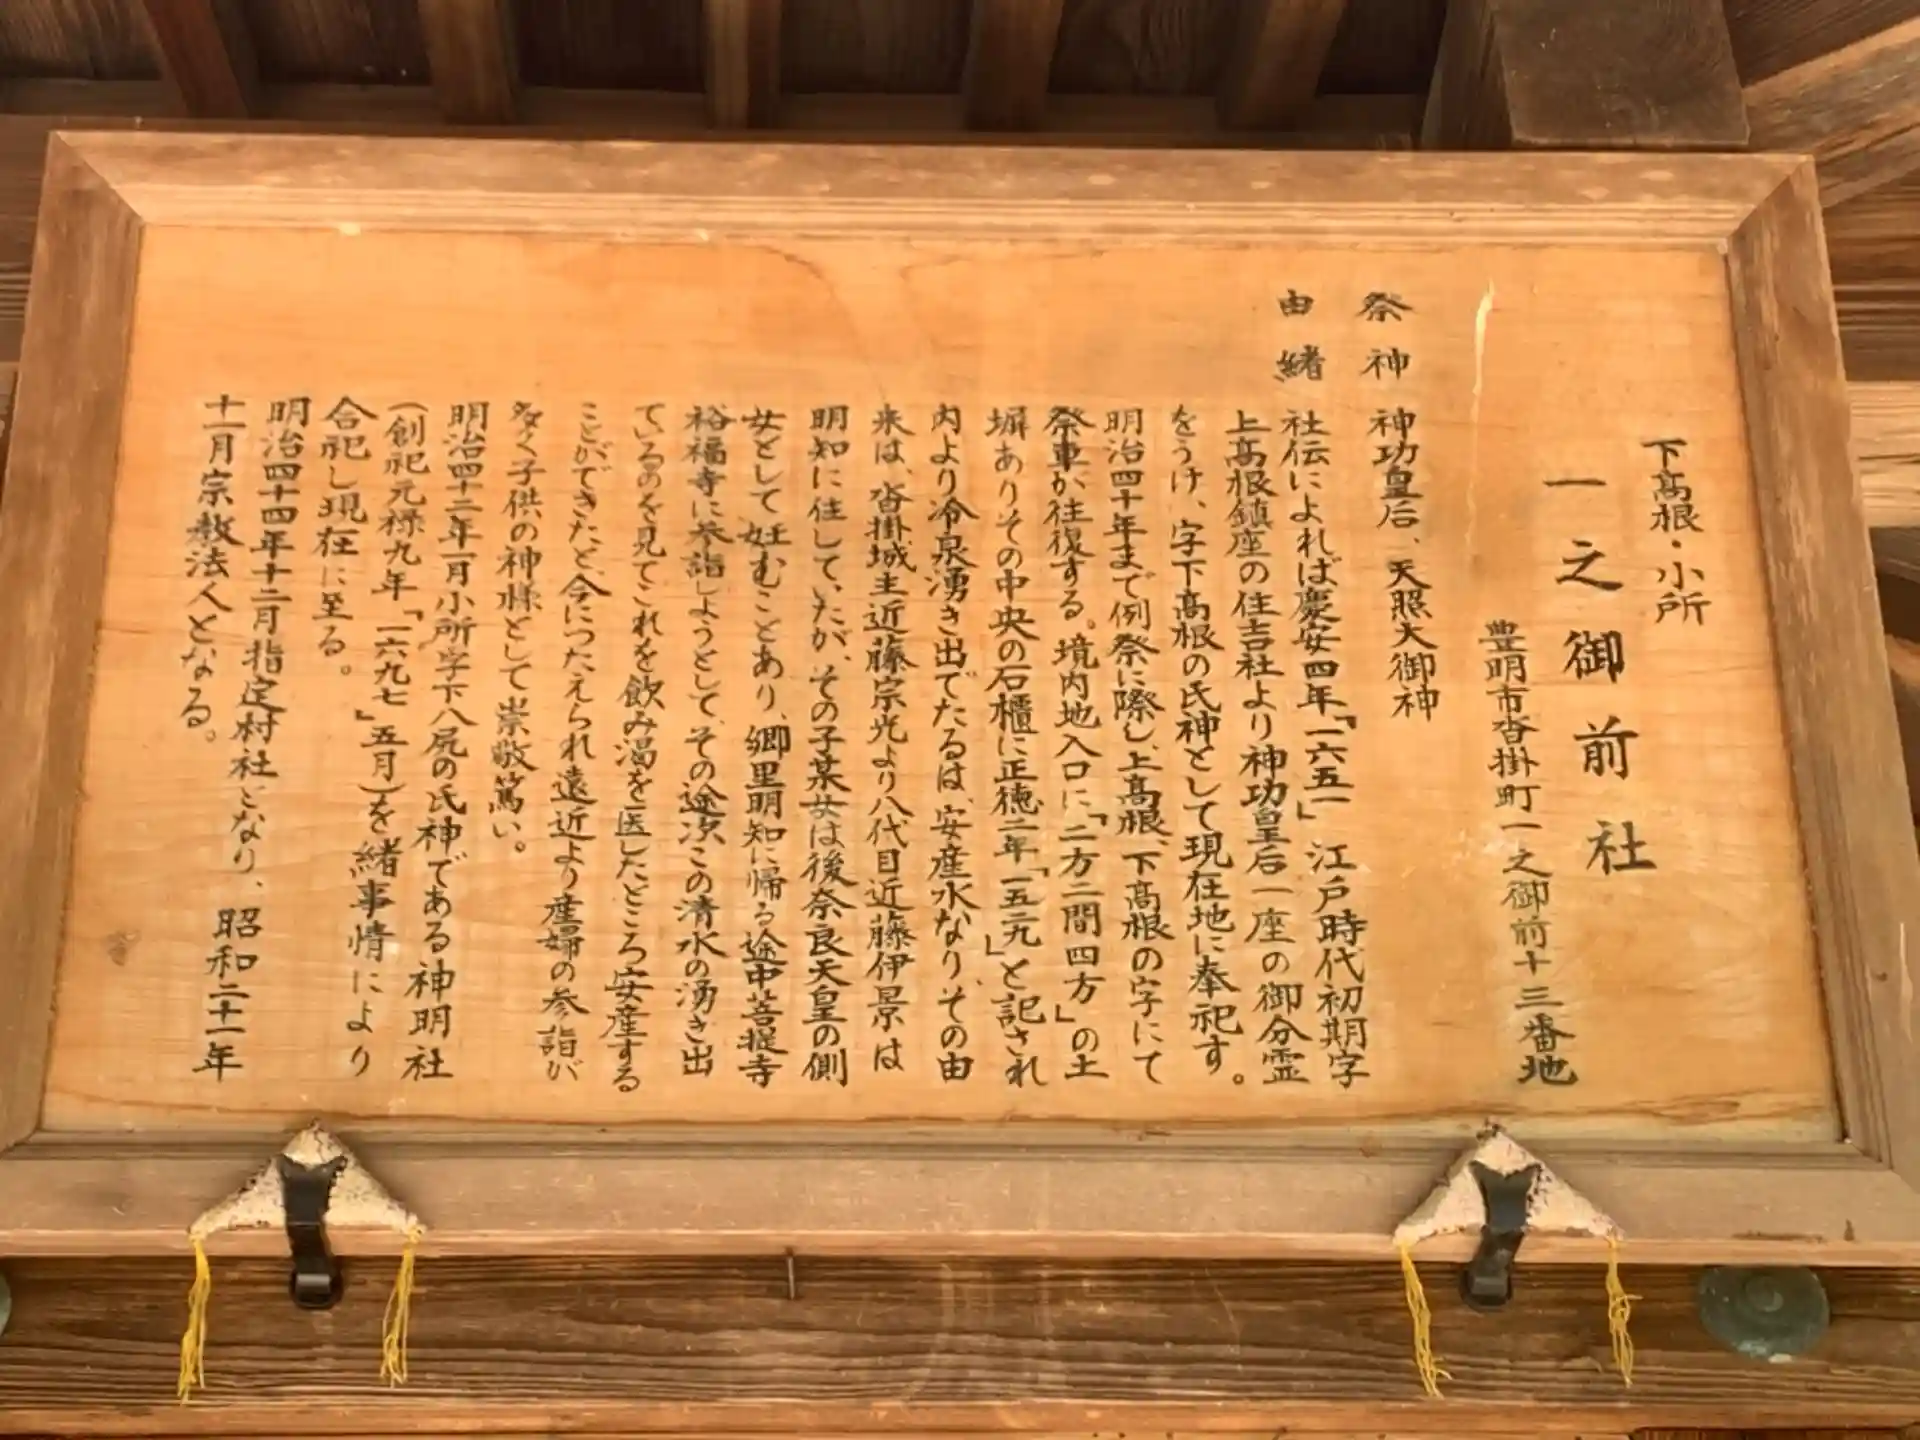 下高根・小所
一之御前社
豊明市沓掛町一之御前十三番地
祭神 神功皇后、天照大御神
由緒 社伝によれば慶安四年「一六五一」江戸時代初期字
上高根鎮座の住吉社より神功皇后一座の御分霊
をうけ、字下高根の氏神として現在地に奉祀す。
明治四十年まで例祭に際し、上高根、下高根の字にて
祭車が往復する。境内地入口に「二方二間四方」の土
塀ありその中央の石櫃に正徳二年「一五二九」と記され
内より冷泉湧き出でたるは、安産水なり、その由
来は、沓掛城主近藤宗光より八代目近藤伊景は
明知に住していたが、その子某女は後奈良天皇の側
女として妊むことあり、郷里明知に帰る途中菩提寺
裕福寺に参詣しようとして、その途次この清水の湧き出
ているのを見てこれを飲み渇を医したところ安産する
ことができたと、今につたえられ遠近より産婦の参詣が
多く子供の神様として崇敬篤い。
明治四十二年一月小所字下八尻の氏神である神明社
(創祀元禄九年「一六九七」五月)を緒事情により
合祀し現在に至る。
明治四十四年十二月指定村社となり、昭和二十一年
十一月宗教法人となる。